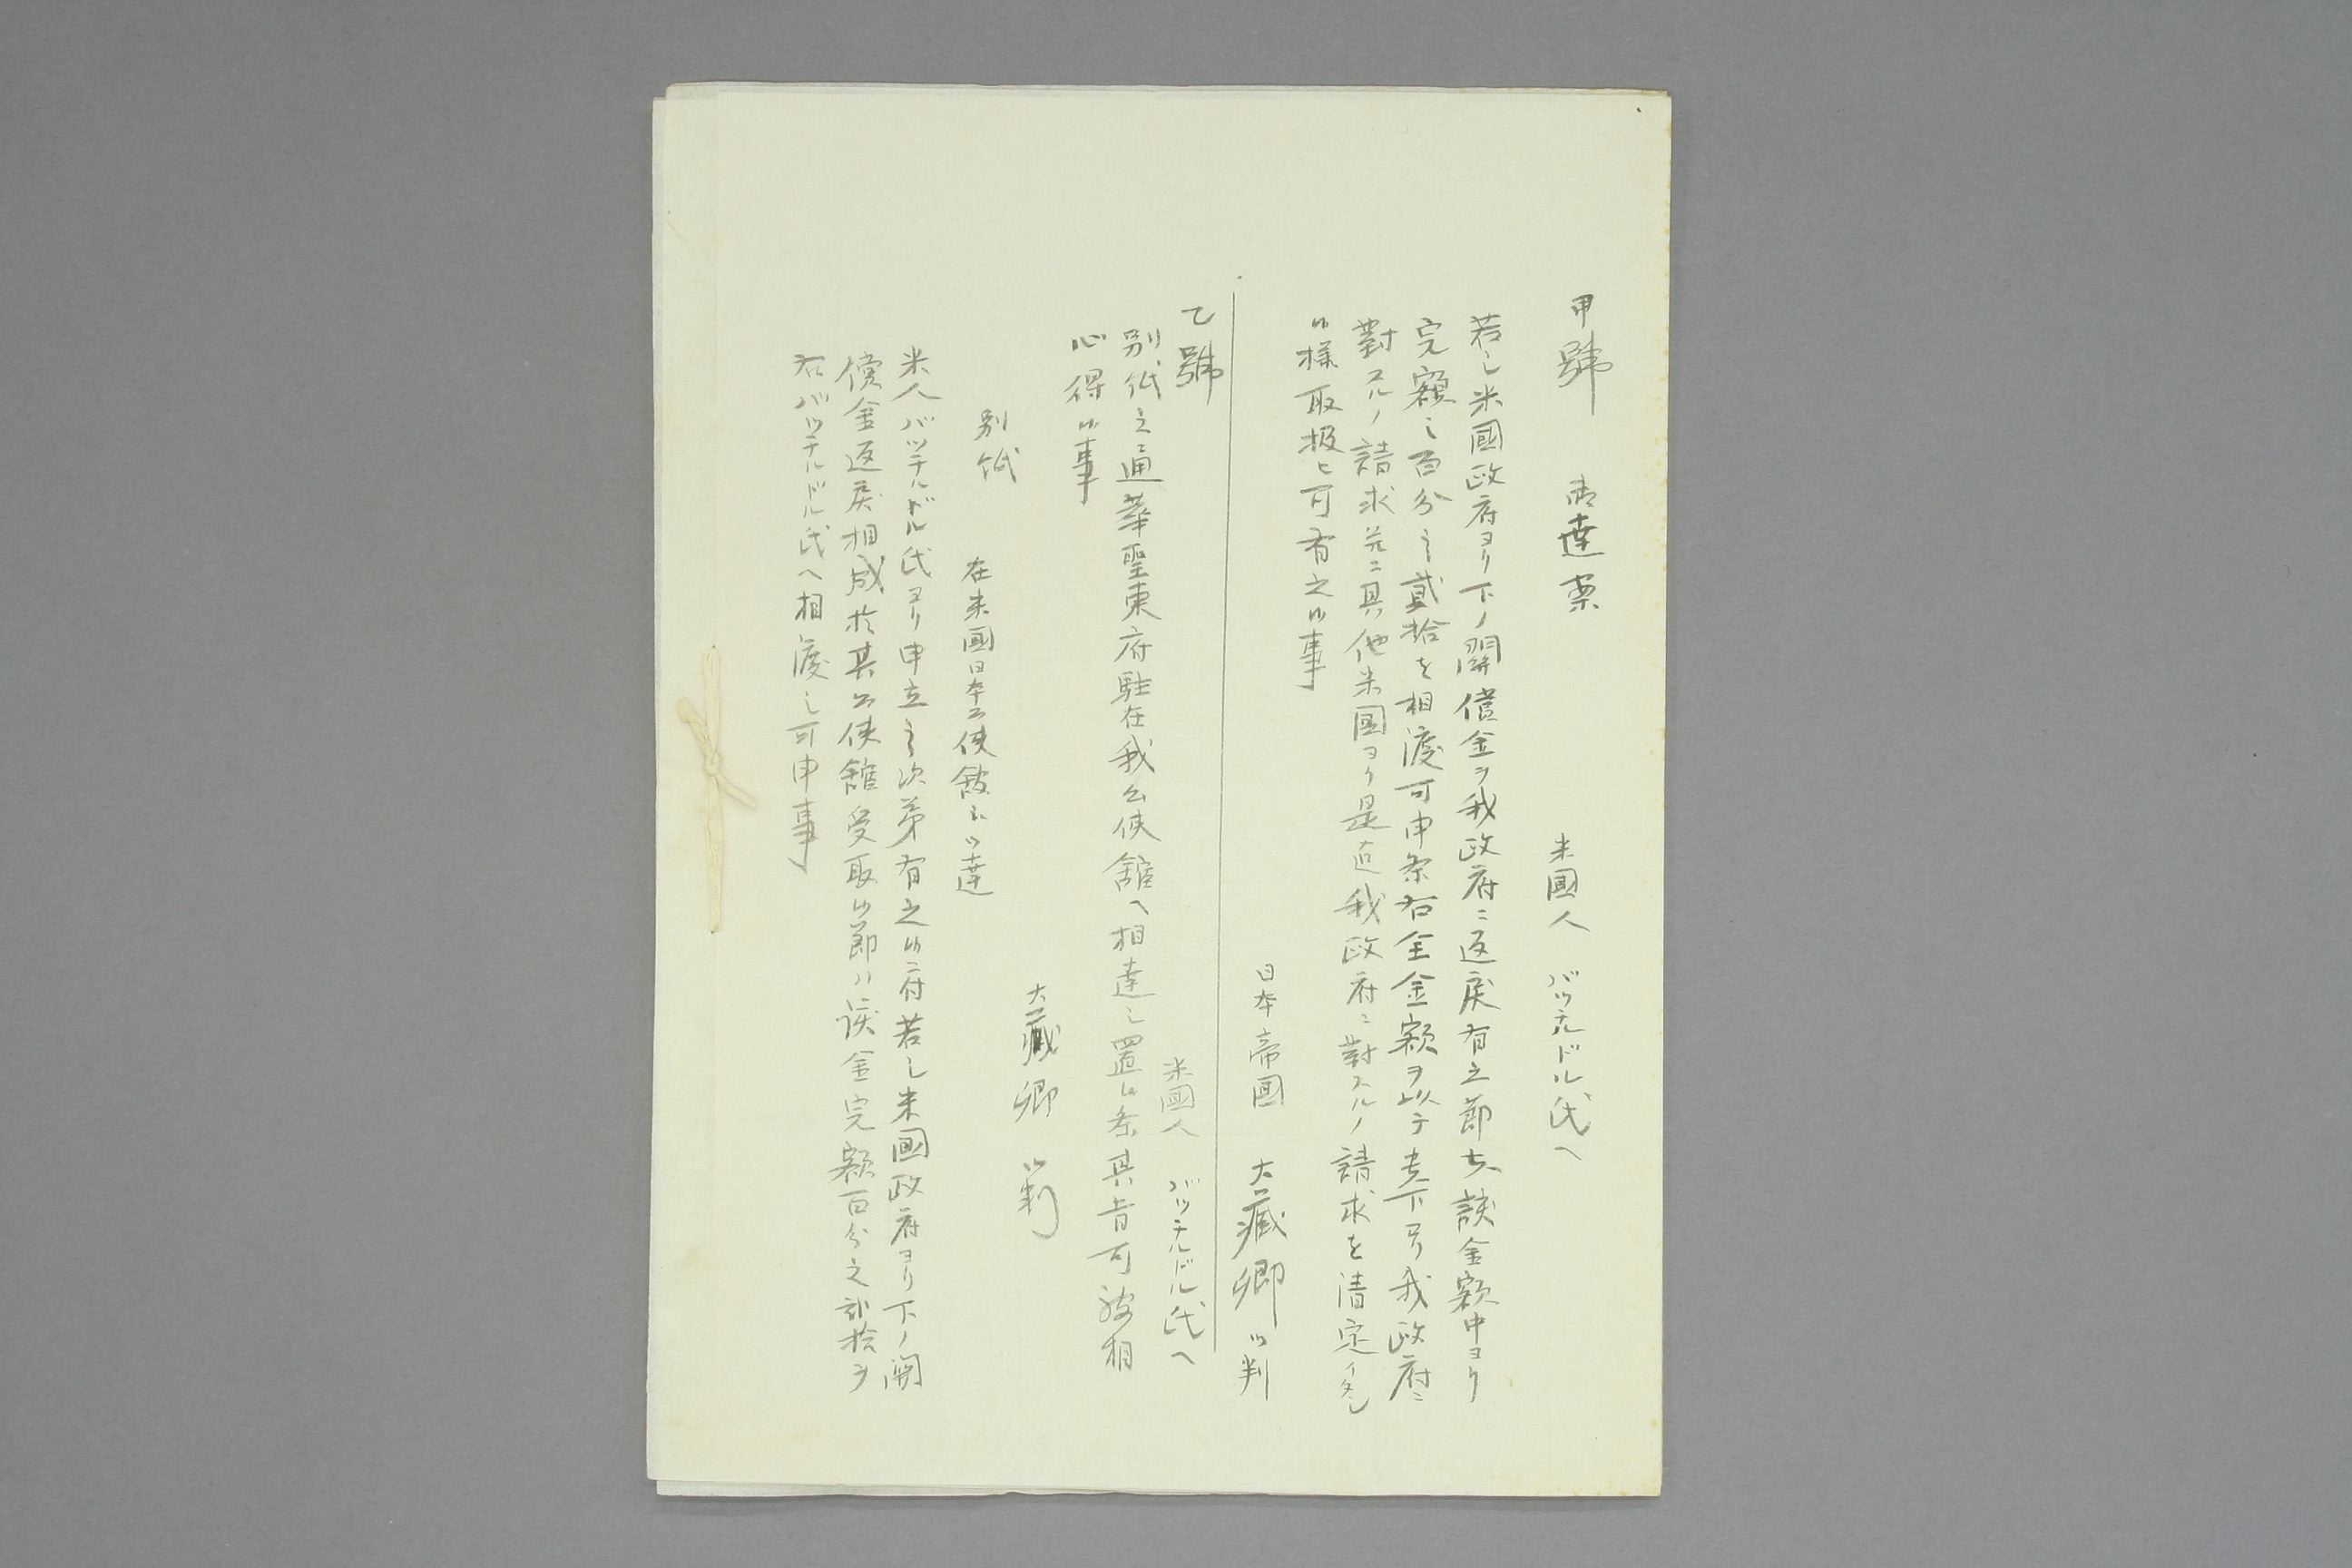 甲號 御達案
米國人 バッチルドル氏へ
若し米國政府ヨリ下ノ関償金ヲ我政府ニ返戻有之節ハ該金額中ヨリ
完額之百分之貳拾を相渡可申条右全金額ヲ以テ老下ヨリ我政府ニ
對スルノ請求并ニ其他米国ヨリ是迄我政府ニ對スルノ請求を清定イタし
候様取扱ヒ可有之候事
日本帝國 大蔵卿 御判
乙號
米國人 バッチルドル氏へ
別紙之通華聖東府駐在我公使舘へ相達し置候条其旨可被相
心得候事
大蔵卿 御判
別紙
在米國日本公使館江御達
米人バッチルドル氏ヨリ申立之次第有之候ニ付若し米國政府ヨリ下ノ関
償金返戻相成於其公使舘受取候節ハ該金完額百分之弐拾ヲ
右バッチルドル氏へ相渡し可申事